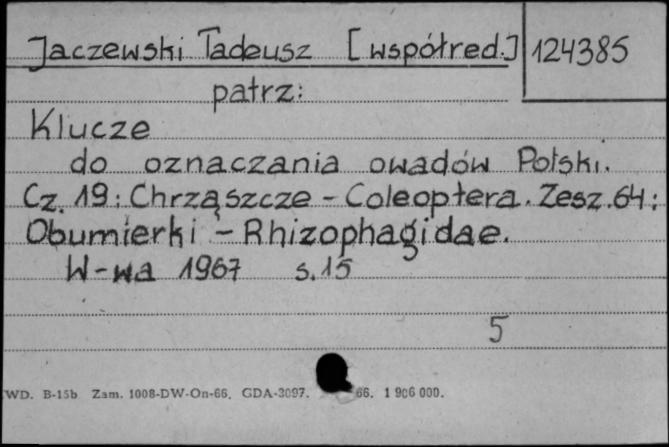 Jaczewski Tadeusz [współred.] 124385
patrz:
Klucze
do oznaczania owadów Polski.
Cz. 19: Chrząszcze - Coleoptera. Zesz. 64:
Obumierki - Rhizophagidae.
W-wa 1967 s. 15
5
WD. B-15b Zam. 1008-DW-On-66. GDA-3097. 66. 1 906 000.